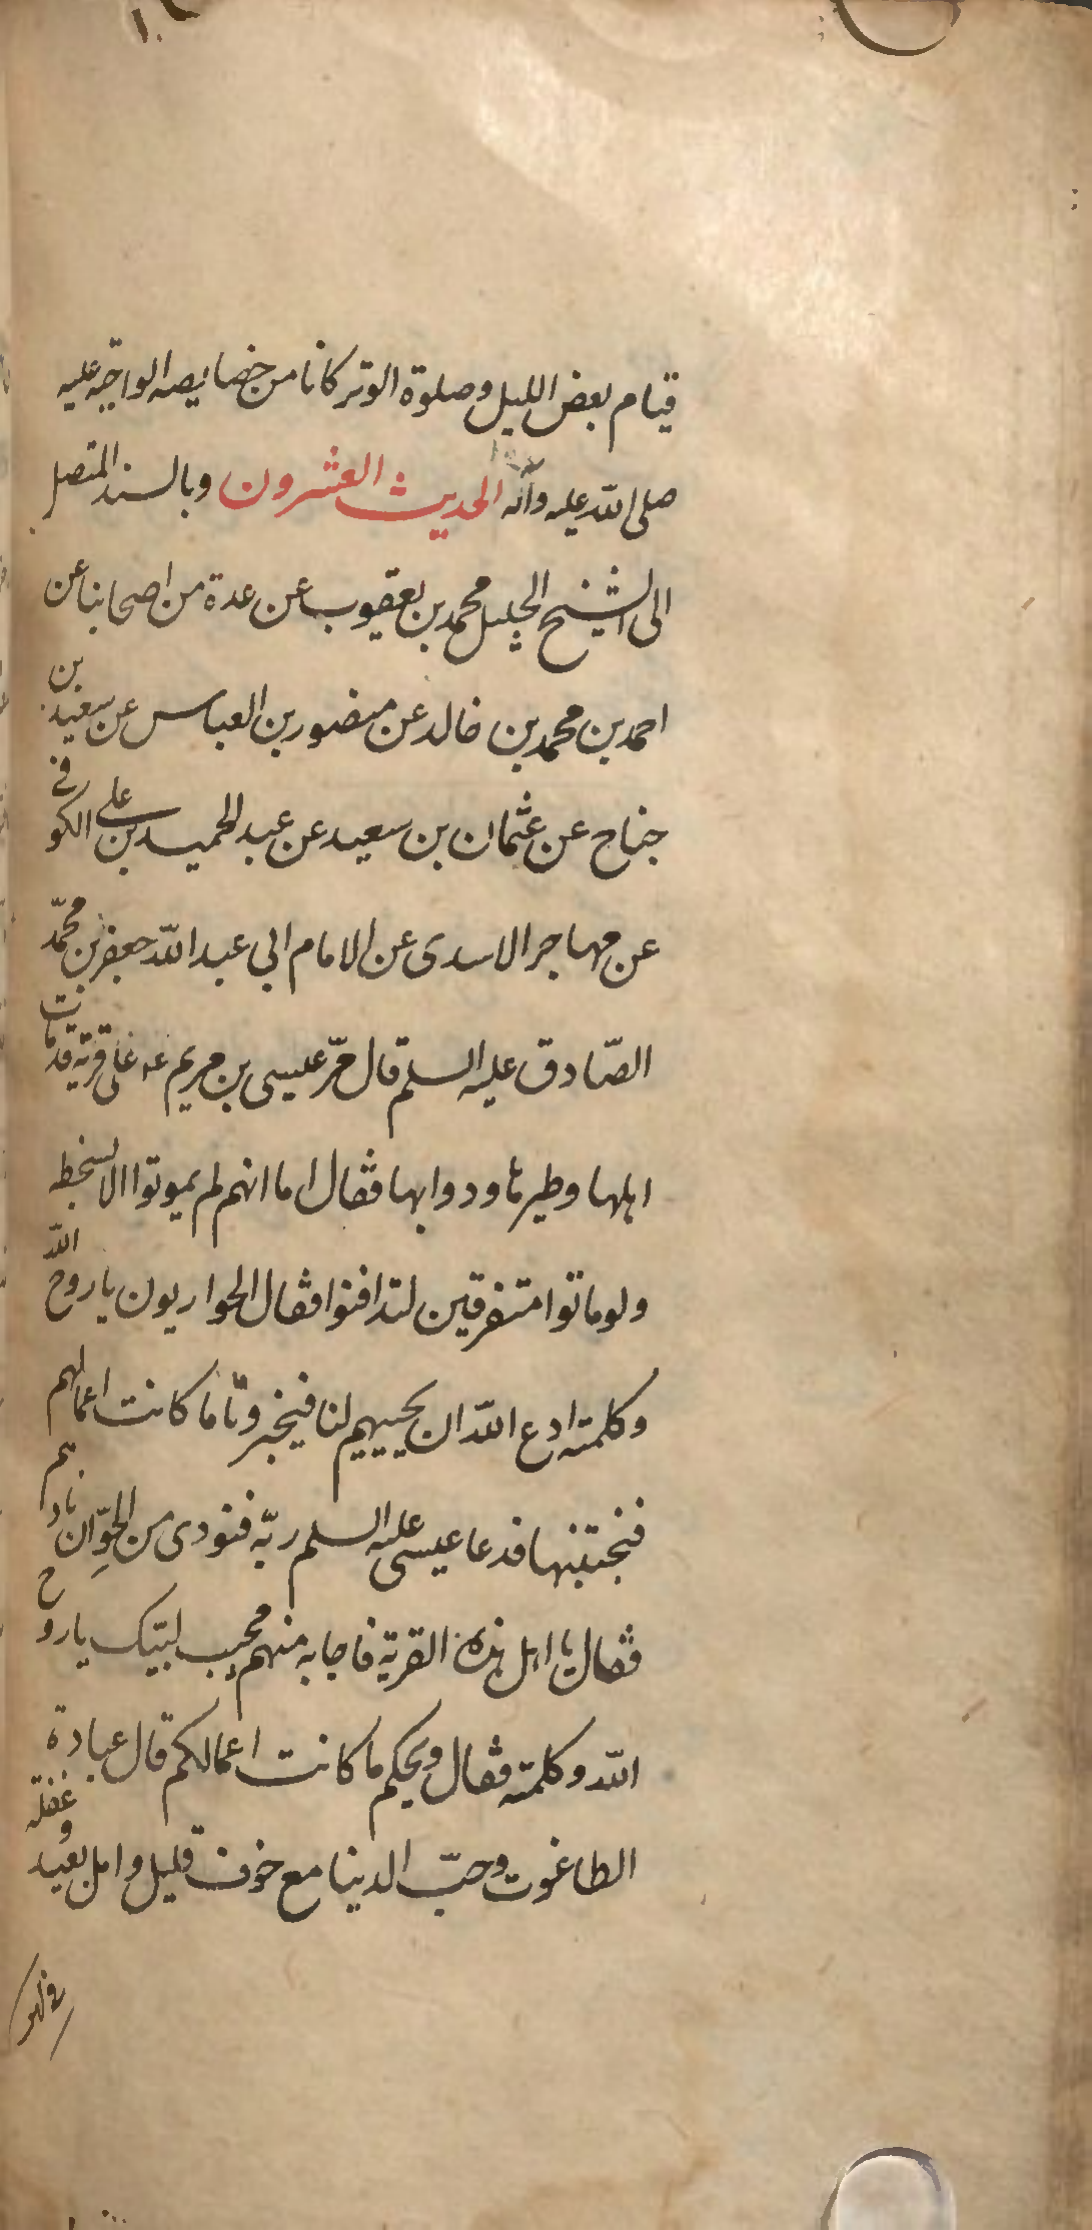 قيام بعض الليل وصلوة الوتر كانا من خصايصه الواجبة عليه
صلى الله عليه وآله الحديث العشرون وبالسند المتصل
الى الشيخ الجليل محمد بن يعقوب عن عدة من اصحابنا عن
احمد بن محمد بن خالد عن منصور بن العباس عن سعيد بن
جناح عن عثمان بن سعيد عن عبد الحميد بن على الكوفى
عن مهاجر الاسدى عن الامام ابى عبد الله جعفر بن محمّد
الصّادق عليه السلم قال مرّ عيسى بن مريم ع على قرية قد مات
اهلها وطيرها ودوابها فقال اما انهم لم يموتوا الا بسخط
ولو ماتوا متفرقين لتدافنوا فقال الحواريون يا روح الله
وكلمته ادع الله ان يحييهم لنا فيخبرونا ما كانت اعمالهم
فنجتنبها فدعا عيسى عليه السلم ربّه فنودى من الجوّ ان نادهم
فقال يا اهل هذه القرية فاجابه منهم مجيب لبّيك يا روح
الله وكلمته فقال ويحكم ما كانت اعمالكم قال عبادة
الطاغوت وحبّ الدنيا مع خوف قليل وامل بعيد وغفلة
فى لهو